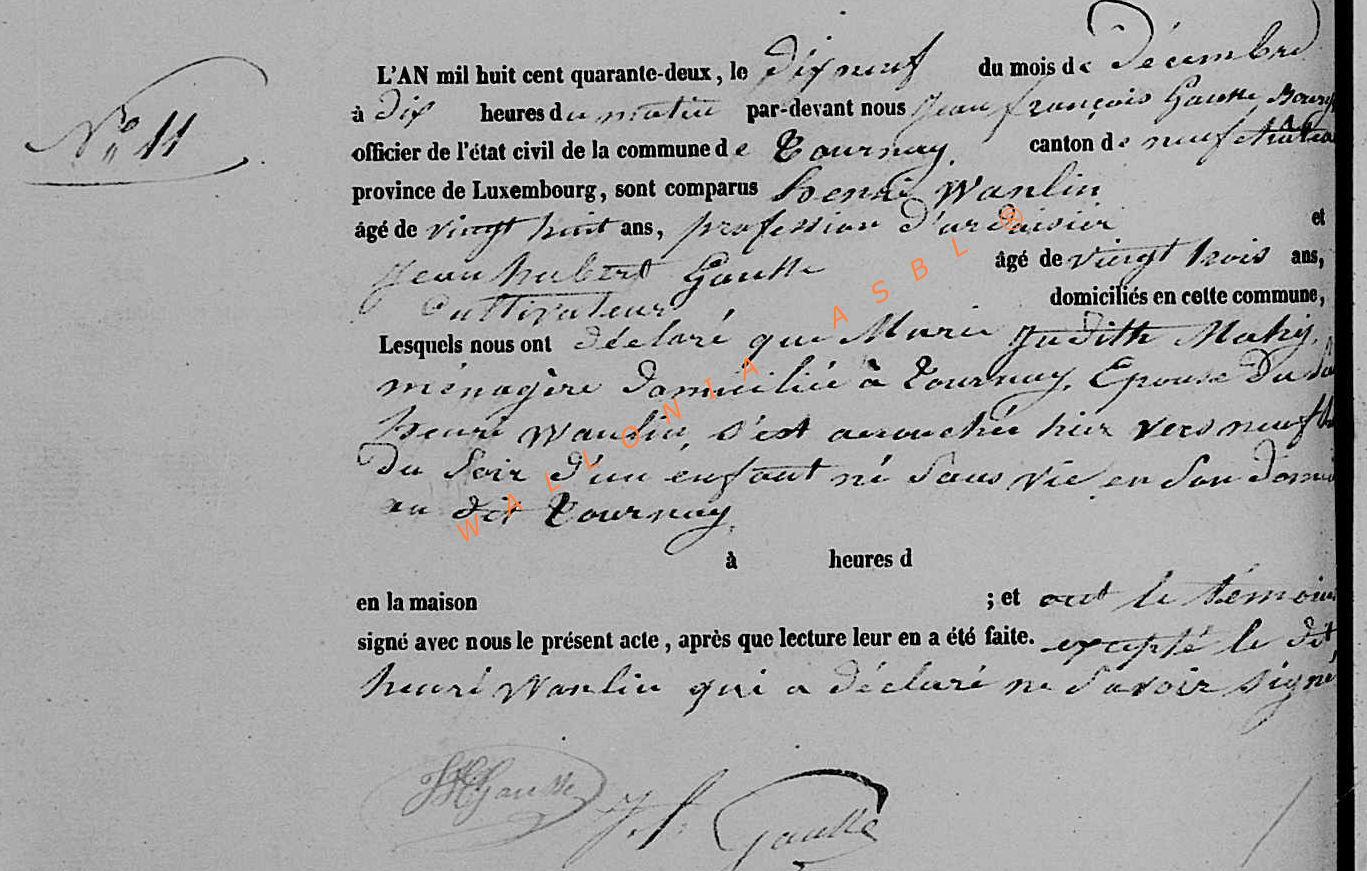 N° 11
L'AN mil huit cent quarante-deux, le dix neuf du mois de Décembre
à dix heures du matin par-devant nous jean françois Gausse
officier de l'état civil de la commune de Tournay, canton de neufchateau
province de Luxembourg, sont comparus henri Wanlin
âgé de vingt huit ans, profession d'ardoisier et
jean hubert Gausse âgé de vingt trois ans,
Cultivateur domiciliés en cette commune,
Lesquels nous ont déclaré que Marie Judith Mahy,
ménagère domiciliée à Tournay, Epouse du dit
henri Wanlin, s'est accouchée hier vers neuf h
du soir d'un enfant né sans vie en son domi
au dit Tournay
à heures d
en la maison ; et ont le témoin
signé avec nous le présent acte, après que lecture leur en a été faite. excepté le dit
henri Wanlin qui a déclaré ne savoir signé
JHGausse J.f. Gausse
WALLONIA ASBL ®